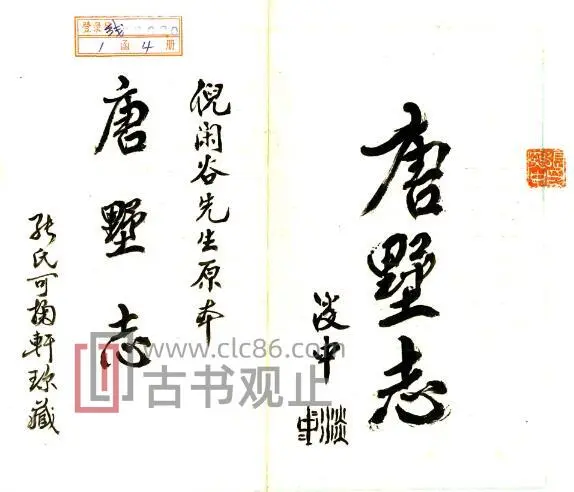 唐墅志
淡中
倪闲谷先生原本
唐墅志
张氏可掬軒珍藏
1 函 4 册
www.clc86.com
古书观止